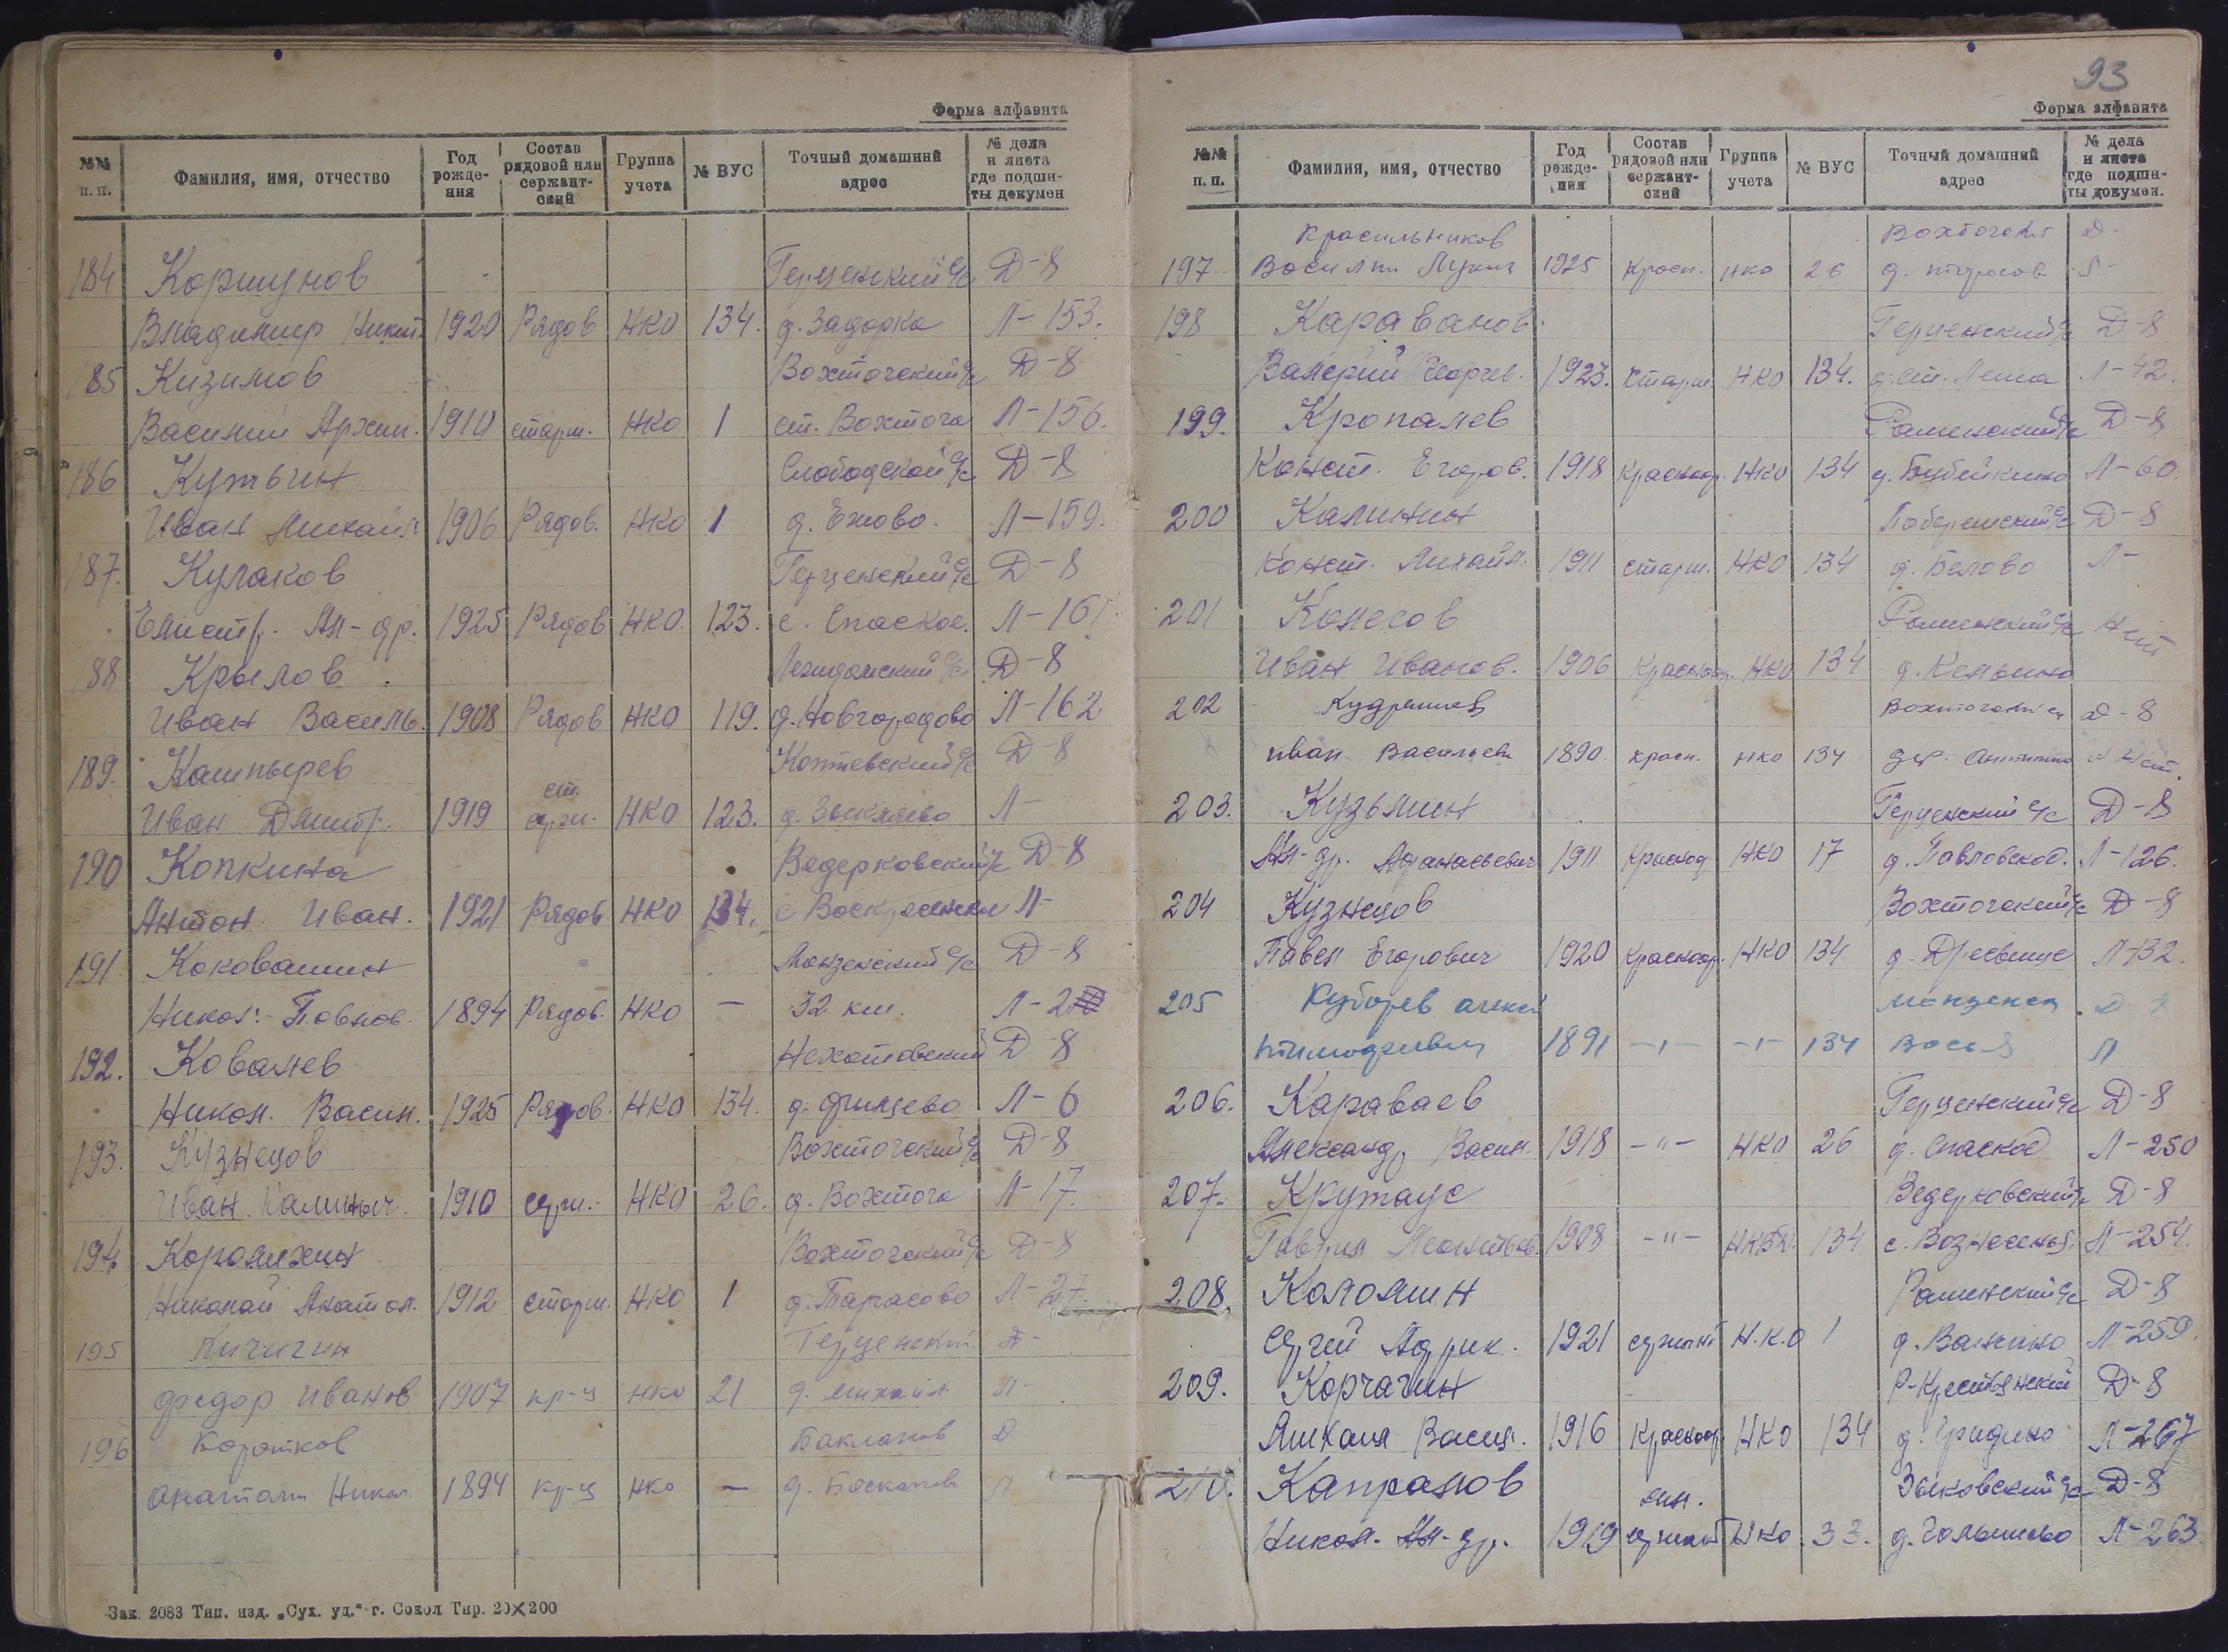 Форма алфавита
№№ п. п. Фамилия, имя, отчество Год рожде-ния Состав рядовой или сержант-ский Группа учета № ВУС Точный домашний адрес № дела и листа где подши-ты докумен
184 Коршунов Герценский с/с Д-8
Владимир Никит. 1920 Рядов НКО 134. д. Задорка Л-153.
85 Кизимов Вохтогский с/с Д-8
Василий Архип. 1910 старш. НКО 1 ст. Вохтога Л-156.
186 Кутьин Слободской с/с Д-8
Иван Михайл 1906 Рядов. НКО 1 д. Ежово. Л-159.
187. Кулаков Герценский с/с Д-8
Елистр. Ал-др. 1925 Рядов НКО 123. с. Спаское. Л-161
88 Крылов Леждомский с/с Д-8
Иван Василь. 1908 Рядов НКО 119. д. Новгородово Л-162
189. Кашпырев Коптевский с/с Д-8
ст.
Иван Дмитр. 1919 серж. НКО 123. д. Л-
190 Копкина Ведерковский с/с Д-8
Антон Иван. 1921 Рядов НКО 134. с Воскресенское Л-
191 Коковашин Монзенский с/с Д-8
Никол. Павлов. 1894 Рядов. НКО — 32 км. Л-2
192. Ковалев Д-8
Никол. Васил. 1925 Рядов. НКО 134. д. Фрилцево Л-6
193. Кузнецов Вохтогский с/с Д-8
Иван Калиныч. 1910 серж. НКО 26. д. Вохтога Л-17.
194 Королихин Вохтогский с/с Д-8
Николай Анатол. 1912 старш. НКО 1 д. Тарасово Л-27.
195 Кичигин Герценский Д-
Федор Иванов 1907 кр-ц НКО 21 д. Михайл. Л-
196 Коротков Баклан Д
Анатолий Никол. 1894 кр-ц НКО — д. Л
Зак. 2083 Тип. изд. „Сух. уд.“ г. Сокол Тир. 20X200
93
Форма алфавита
№№ п. п. Фамилия, имя, отчество Год рожде-ния Состав рядовой или сержант-ский Группа учета № ВУС Точный домашний адрес № дела и листа где подши-ты докумен.
Красильников Вохтогский Д-
197 Василий Лукич 1925 Красн. НКО 26 д. Л-
198 Караванов Герценский с/с Д-8
Валерий Георгев. 1923. старш. НКО 134. д. ст. Лежа Л-42.
199. Кропалев Раменский с/с Д-8
Конст. Егоров. 1918 красноар. НКО 134 д. Бубейкино Л-60.
200 Калинин Побережский с/с Д-8
Конст. Михайл. 1911 старш. НКО 134 д. Белово Л-
201 Колесов Раменский с/с Нет
Иван Иванов. 1906 Красноар. НКО 134 д.
202 Кудряшев Вохтогский с/с Д-8
Иван Васильев 1890 красн. НКО 134 дер.
203. Кузьмин Герценский с/с Д-8
Ал-др. Афанасьевич 1911 Красноар НКО 17 д. Павловское. Л-126.
204 Кузнецов Вохтогский с/с Д-8
Павел Егорович 1920 Красноар. НКО 134 д. Дресвище Л-132.
205 Монзенск Д
1891 -"- -"- 134 Л
206. Караваев Герценский с/с Д-8
Александр Васил. 1918 -"- НКО 26 д. Спаское Л-250
207. Крутаус Ведерковский с/с Д-8
Гаврил Леонтьев. 1908 -"- НКВД. 134 с. Вознесенье Л-254.
208. Коломин Раменский с/с Д-8
Сергей Адрик. 1921 сержант Н.К.О 1 д. Ванчино Л-259.
209. Корчагин Р-Крестьянский Д-8
Михаил Васил. 1916 Красноар. НКО 134 д. Гридино Л-267
210. Капралов Зыковский с/с Д-8
мл.
Никол. Ал-др. 1919 сержант НКО 33. д. Голышово Л-263